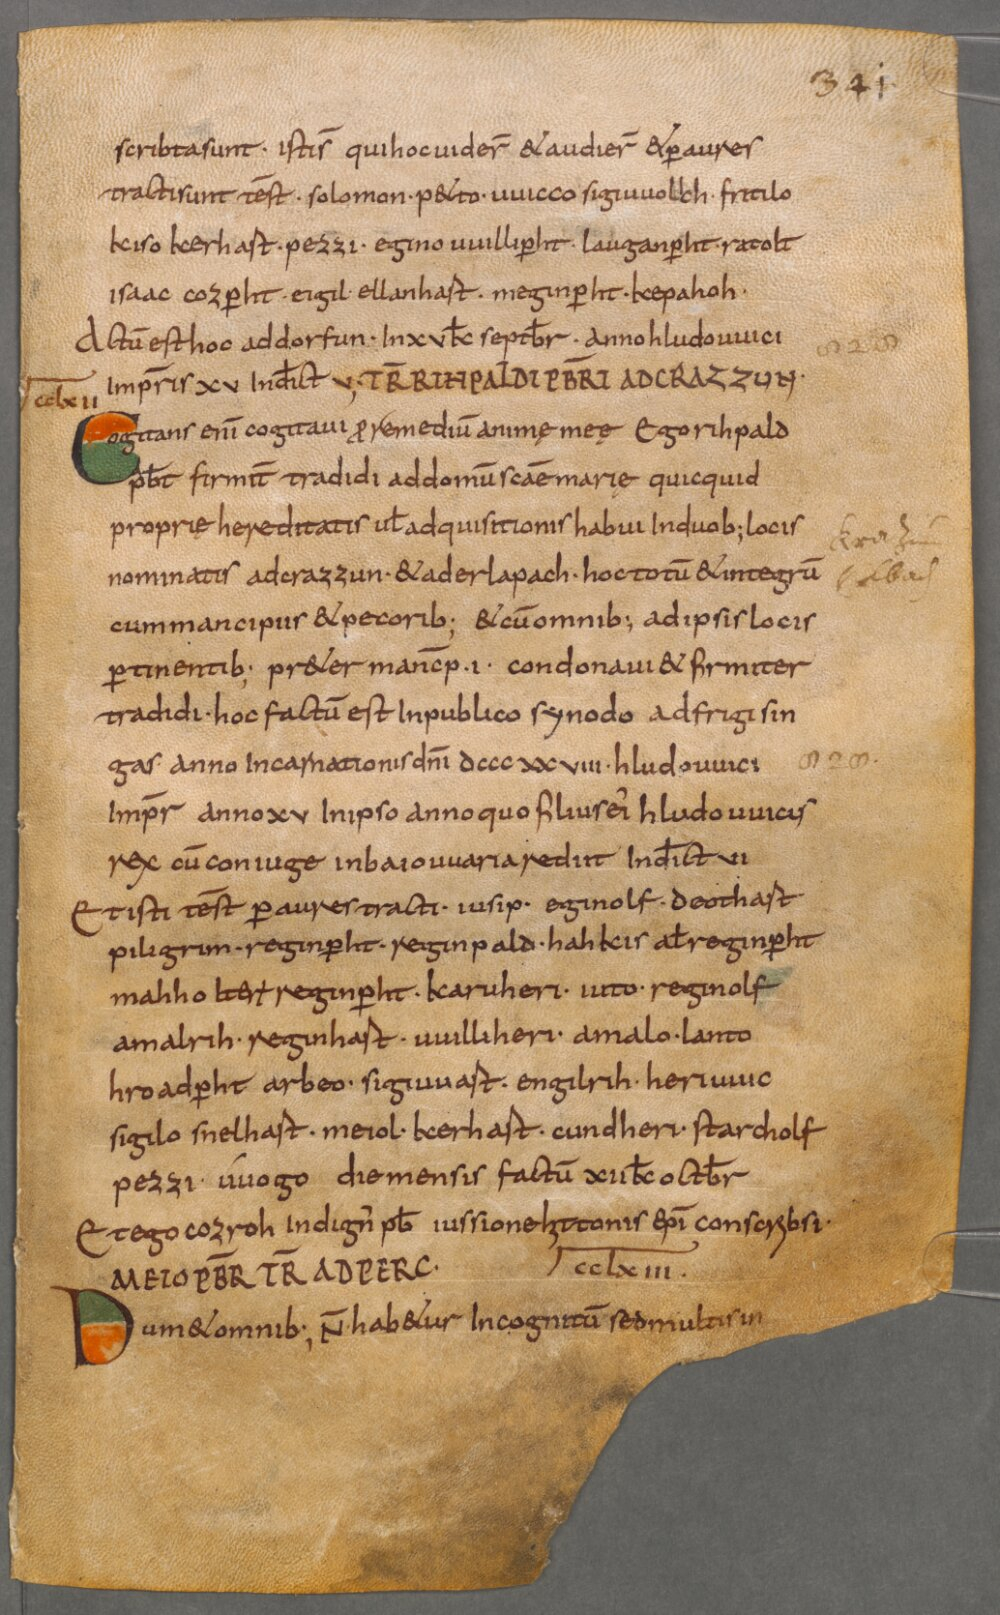 341
scribta sunt · istis̄ qui hoc uider̄ & audier̄ & p̄ aures
tracti sunt tēst · solomon · p&to · uuicco sigiuuolch · fritilo
kiso kerhast · pezzi · egino uuillip̄ht · lauganp̄ht · ratolt
isaac cozp̄ht · eigil · ellanhast · meginp̄ht · kepahoh ·
Actū est hoc ad dorfun · In xv kł septb̄r · anno hludouuici
Imp̄ris xv Indict̄ v; TR̄ RIHPALDI PB̄RI AD CRAZZUN ·
828
cclxii
Cogitans eni cogitaui ꝓ remediū animę meę Ego rihpald
pb̄t firmit̄ tradidi ad domū scāe marię quicquid
proprię hereditatis ut̄ adquisitionis habui In duob; locis
nominatis ad crazzun · & ad erlapach · hoc totū & integrū
cum mancipiis & pecorib; & cū omnib; ad ipsis locis
p̄tinentib; pr&er manc̄p · i · condonaui & firmiter
tradidi · hoc factū est In publico synodo ad frigisin
gas anno Incarnationis dn̄i dcccxxviii · hludouuici
828 ·
Imp̄r anno xv In ipso anno quo filius ei hludouuicus
rex cū coniuge in baiouuaria rediit Indict̄ vi
Et isti tēst p̄ aures tracti · iusip · eginolf · deothast
piligrim · reginp̄ht · reginpald · hahkis at̄ reginp̄ht
mahho it̄ reginp̄ht · karuheri · iuto · reginolf
amalrih · reginhast · uuilliheri · amalo · lanto
hroadp̄ht arbeo · sigiuuast · engilrih · heriuuic
sigilo snelhast · meiol · kerhast · cundheri · starcholf
pezzi · uuogo die mensis factū xii kł octb̄r
Et ego cozroh Indign̄ pb̄ iussione hittonis ep̄i conscribsi ·
MEIO PB̄R TR̄ AD PERC ·
cclxiii ·
Dum & omnib; N̄ hab&ur Incognitū sed multis in